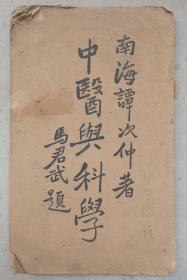 南海譚次仲著
中醫與科學
馬君武題